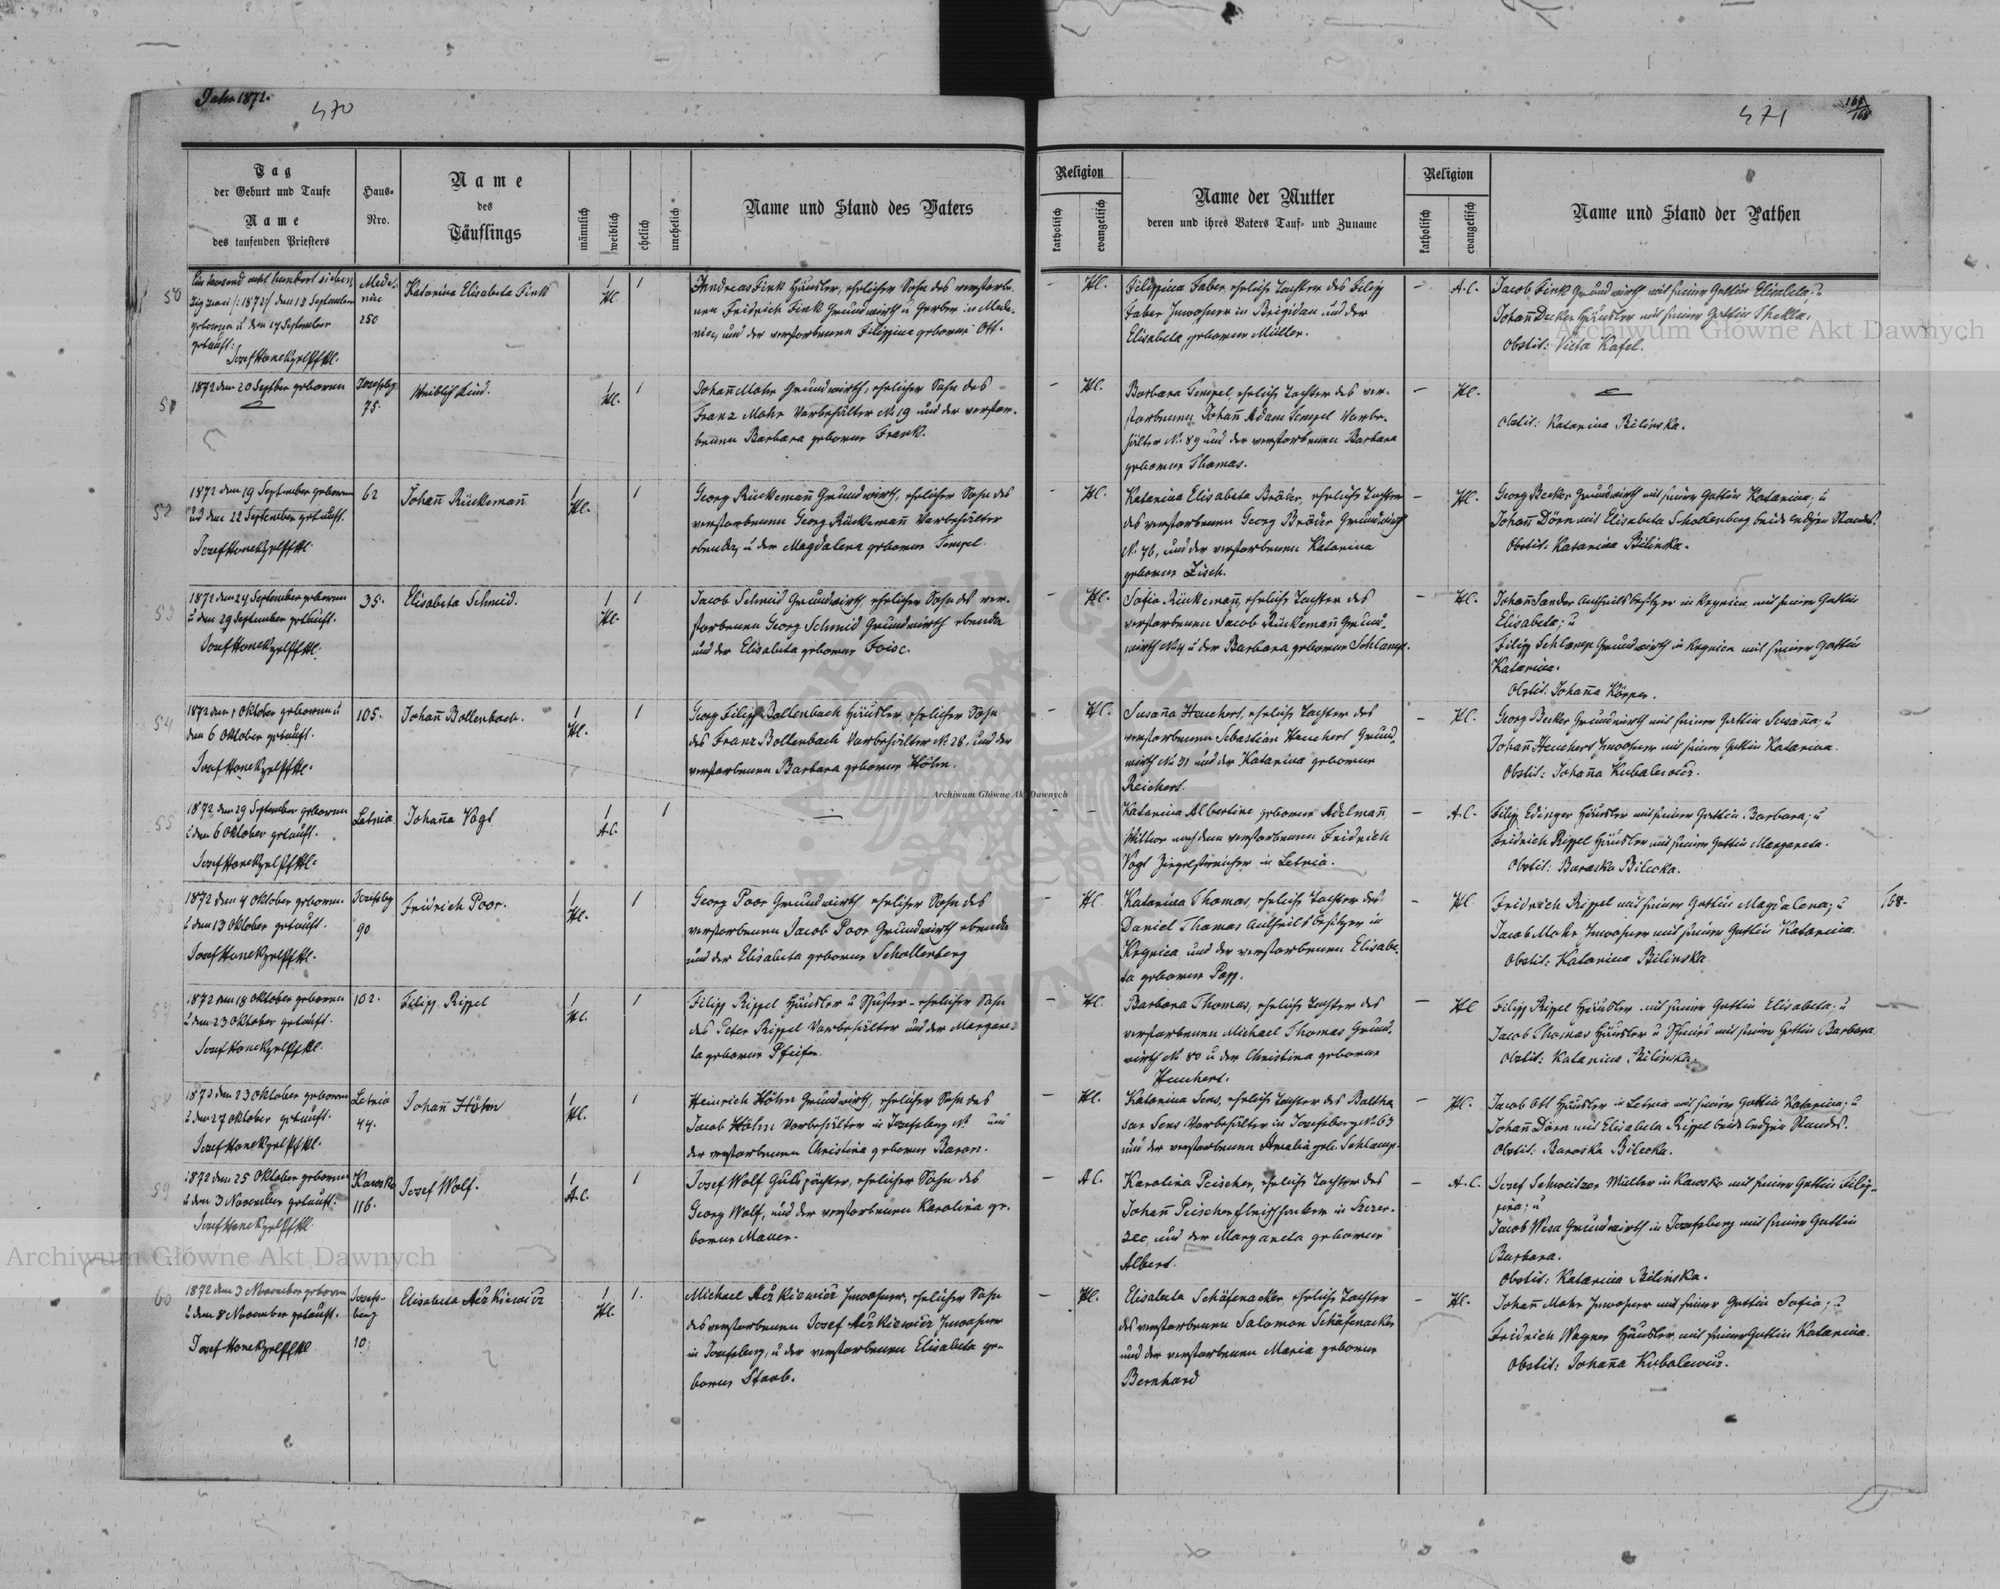 Jahr 1872.
470
Tag
der Geburt und Taufe
Name
des taufenden Priesters
Haus-
Nro.
Name
des
Täuflings
männlich
weiblich
ehelich
unehelich
Name und Stand des Vaters
50
Ein tausend acht hundert sieben
zig zwei /:1872/ den 13 September
geboren u den 17 September
getauft:
Mede-
nice
250
Katarina Elisabeta Fink
1
Hl.
1
Andreas Fink Häusler, ehelicher Sohn des verstorbe-
nen Fridrich Fink Grundwirth u Gerber in Mede-
nice, und der verstorbenen Filippine geborene Ott.
51
1872 den 20 Septber geboren
Josefsbg
75.
Weiblich Kind.
1
Hl.
1
Johañ Mohr Grundwirth, ehelicher Sohn des
Franz Mohr Vorbehälter N. 19 und der verstor-
benen Barbara geborene Frank.
52
1872 den 19 September geboren
und den 22 September getauft.
62
Johañ Rückemañ
1
Hl.
1
Georg Rückemañ Grundwirth, ehelicher Sohn des
verstorbenen Georg Rückemañ Vorbehälter
ebenda, u der Magdalena geborene Tempel.
53
1872 den 24 September geboren
u den 29 September getauft.
35.
Elisabeta Schmid.
1
Hl.
1
Jacob Schmid Grundwirth, ehelicher Sohn des ver-
storbenen Georg Schmid Grundwirth ebenda
und der Elisabeta geborene Foisc.
54
1872 den 1 Oktober geboren u
den 6 Oktober getauft.
105.
Johañ Bollenbach.
1
Hl.
1
Georg Filipp Bollenbach Häusler, ehelicher Sohn
des Franz Bollenbach Vorbehälter N. 28. und der
verstorbenen Barbara geborene Höhn.
55
1872 den 29 September geboren
u den 6 Oktober getauft.
Letnia
Johaña Vogl
1
A.C.
1
—
56
1872 den 4 Oktober geboren
u den 13 Oktober getauft.
Josefsbg
90
Fridrich Poor.
1
Hl.
1
Georg Poor Grundwirth, ehelicher Sohn des
verstorbenen Jacob Poor Grundwirth ebenda
und der Elisabeta geborene Schollenberg
57
1872 den 18 Oktober geboren
u den 23 Oktober getauft.
102.
Filipp Rippel
1
Hl.
1
Filipp Rippel Häusler u Schuster, ehelicher Sohn
des Peter Rippel Vorbehälter und der Margare-
ta geborene Pfeifer.
58
1872 den 23 Oktober geboren
u den 27 Oktober getauft.
Letnia
44.
Johañ Höhn
1
Hl.
1
Heinrich Höhn Grundwirth, ehelicher Sohn des
Jacob Höhn Vorbehälter in Josefsberg N. und
der verstorbenen Christina geborene Baron.
59
1872 den 25 Oktober geboren
u den 3 November getauft.
Kawsko
116.
Josef Wolf.
1
A.C.
1
Josef Wolf Gutspächter, ehelicher Sohn des
Georg Wolf, und der verstorbenen Karolina ge-
borene Mauer.
60
1872 den 3 November geboren
u den 8 November getauft.
Josefs-
berg
10.
1
Hl.
1.
in Josefsberg, u der verstorbenen Elisabeta ge-
borene Staab.
471
168
Religion
katholisch
evangelisch
Name der Mutter
deren und ihres Vaters Tauf- und Zuname
Religion
katholisch
evangelisch
Name und Stand der Pathen
— Hl.
Filippina Faber, eheliche Tochter des Filipp
Faber Inwohner in Brigidau und der
Elisabeta geborene Müller.
— A.C.
Jacob Fink Grundwirth mit seiner Gattin Elisabeta; u
Johañ Decker Häusler mit seiner Gattin Thekla.
Obstit: Victa Kafel.
— Hl.
Barbara Tempel, eheliche Tochter des ver-
storbenen Johañ Adam Tempel Vorbe-
hälter N. 89 und der verstorbenen Barbara
geborene Thomas.
— Hl.
Obstit: Katarina Bilinska.
— Hl.
Katarina Elisabeta Bröder, eheliche Tochter
des verstorbenen Georg Bröder Grundwirth
N. 76, und der verstorbenen Katarina
geborene Zisch.
— Hl.
Georg Becker Grundwirth mit seiner Gattin Katarina; u
Johañ Dörn mit Elisabeta Schollenberg beide ledigen Standes.
Obstit. Katarina Bilinska.
— Hl.
Sofia Rückemañ, eheliche Tochter des
verstorbenen Jacob Rückemañ Grund-
wirth u der Barbara geborene Schlamp.
— Hl.
Johañ Sander Antheilsbesitzer in Ugnica, mit seiner Gattin
Elisabeta; u
Filipp Schlamp Grundwirth in Ugnica mit seiner Gattin
Katarina.
Obstit. Johaña Körper.
— Hl.
Susaña Heuchert, eheliche Tochter des
verstorbenen Sebastian Heuchert Grund-
wirth N. 31 und der Katarina geborene
Reichert.
— Hl.
Georg Becker Grundwirth mit seiner Gattin Susaña; u
Johañ Heuchert Inwohner mit seiner Gattin Katarina.
Obstit: Johaña Kubalewicz.
— —
Katarina Albertine geborene Adelmañ
Witwe nach dem verstorbenen Fridrich
Vogl Ziegelstreicher in Letnia.
— A.C.
Filip Edinger Häusler mit seiner Gattin Barbara; u
Fridrich Rippel Häusler mit seiner Gattin Margareta.
Obstit: Baraska Bilecka.
— Hl.
Katarina Thomas, eheliche Tochter des
Daniel Thomas Antheilsbesitzer in
Ugnica und der verstorbenen Elisabe-
ta geborene Popp.
— Hl.
Fridrich Rippel mit seiner Gattin Magdalena; u
Jacob Mohr Inwohner mit seiner Gattin Katarina.
Obstit: Katarina Bilinska
168.
— Hl.
Barbara Thomas, eheliche Tochter des
verstorbenen Michael Thomas Grund-
wirth N. 80 u der Christina geborene
Heuchert.
— Hl
Filipp Rippel Häusler mit seiner Gattin Elisabeta; u
Jacob Thomas Häusler u Schmied mit seiner Gattin Barbara
Obstit: Katarina Bilinska.
— Hl.
Katarina Sens, eheliche Tochter des Baltha
sar Sens Vorbehälter in Josefsberg N. 63
und der verstorbenen Amalia geb. Schlamp.
— Hl.
Jacob Ott Häusler in Letnia mit seiner Gattin Katarina; u
Johañ Dörn mit Elisabeta Rippel beide ledigen Standes.
Obstit: Baraska Bilecka.
— A.C.
Karolina Peischer, eheliche Tochter des
Johañ Peischer Fleischhacker in Szczer-
zec, und der Margareta geborene
Albert.
— A.C.
Josef Schweitzer Müller in Kawsko mit seiner Gattin Filip-
pina; u
Jacob Wesa Grundwirth in Josefsberg mit seiner Gattin
Barbara.
Obstit: Katarina Bilinska.
— Hl.
Elisabeta Schäfenacker, eheliche Tochter
des verstorbenen Salomon Schäfenacker
und der verstorbenen Maria geborene
Bernhard
— Hl.
Johañ Mohr Inwohner mit seiner Gattin Sofia; u
Fridrich Wagner Häusler, mit seiner Gattin Katarina.
Obstit: Johaña Kubalewicz.
Archiwum Główne Akt Dawnych
Archiwum Główne Akt Dawnych
Archiwum Główne Akt Dawnych